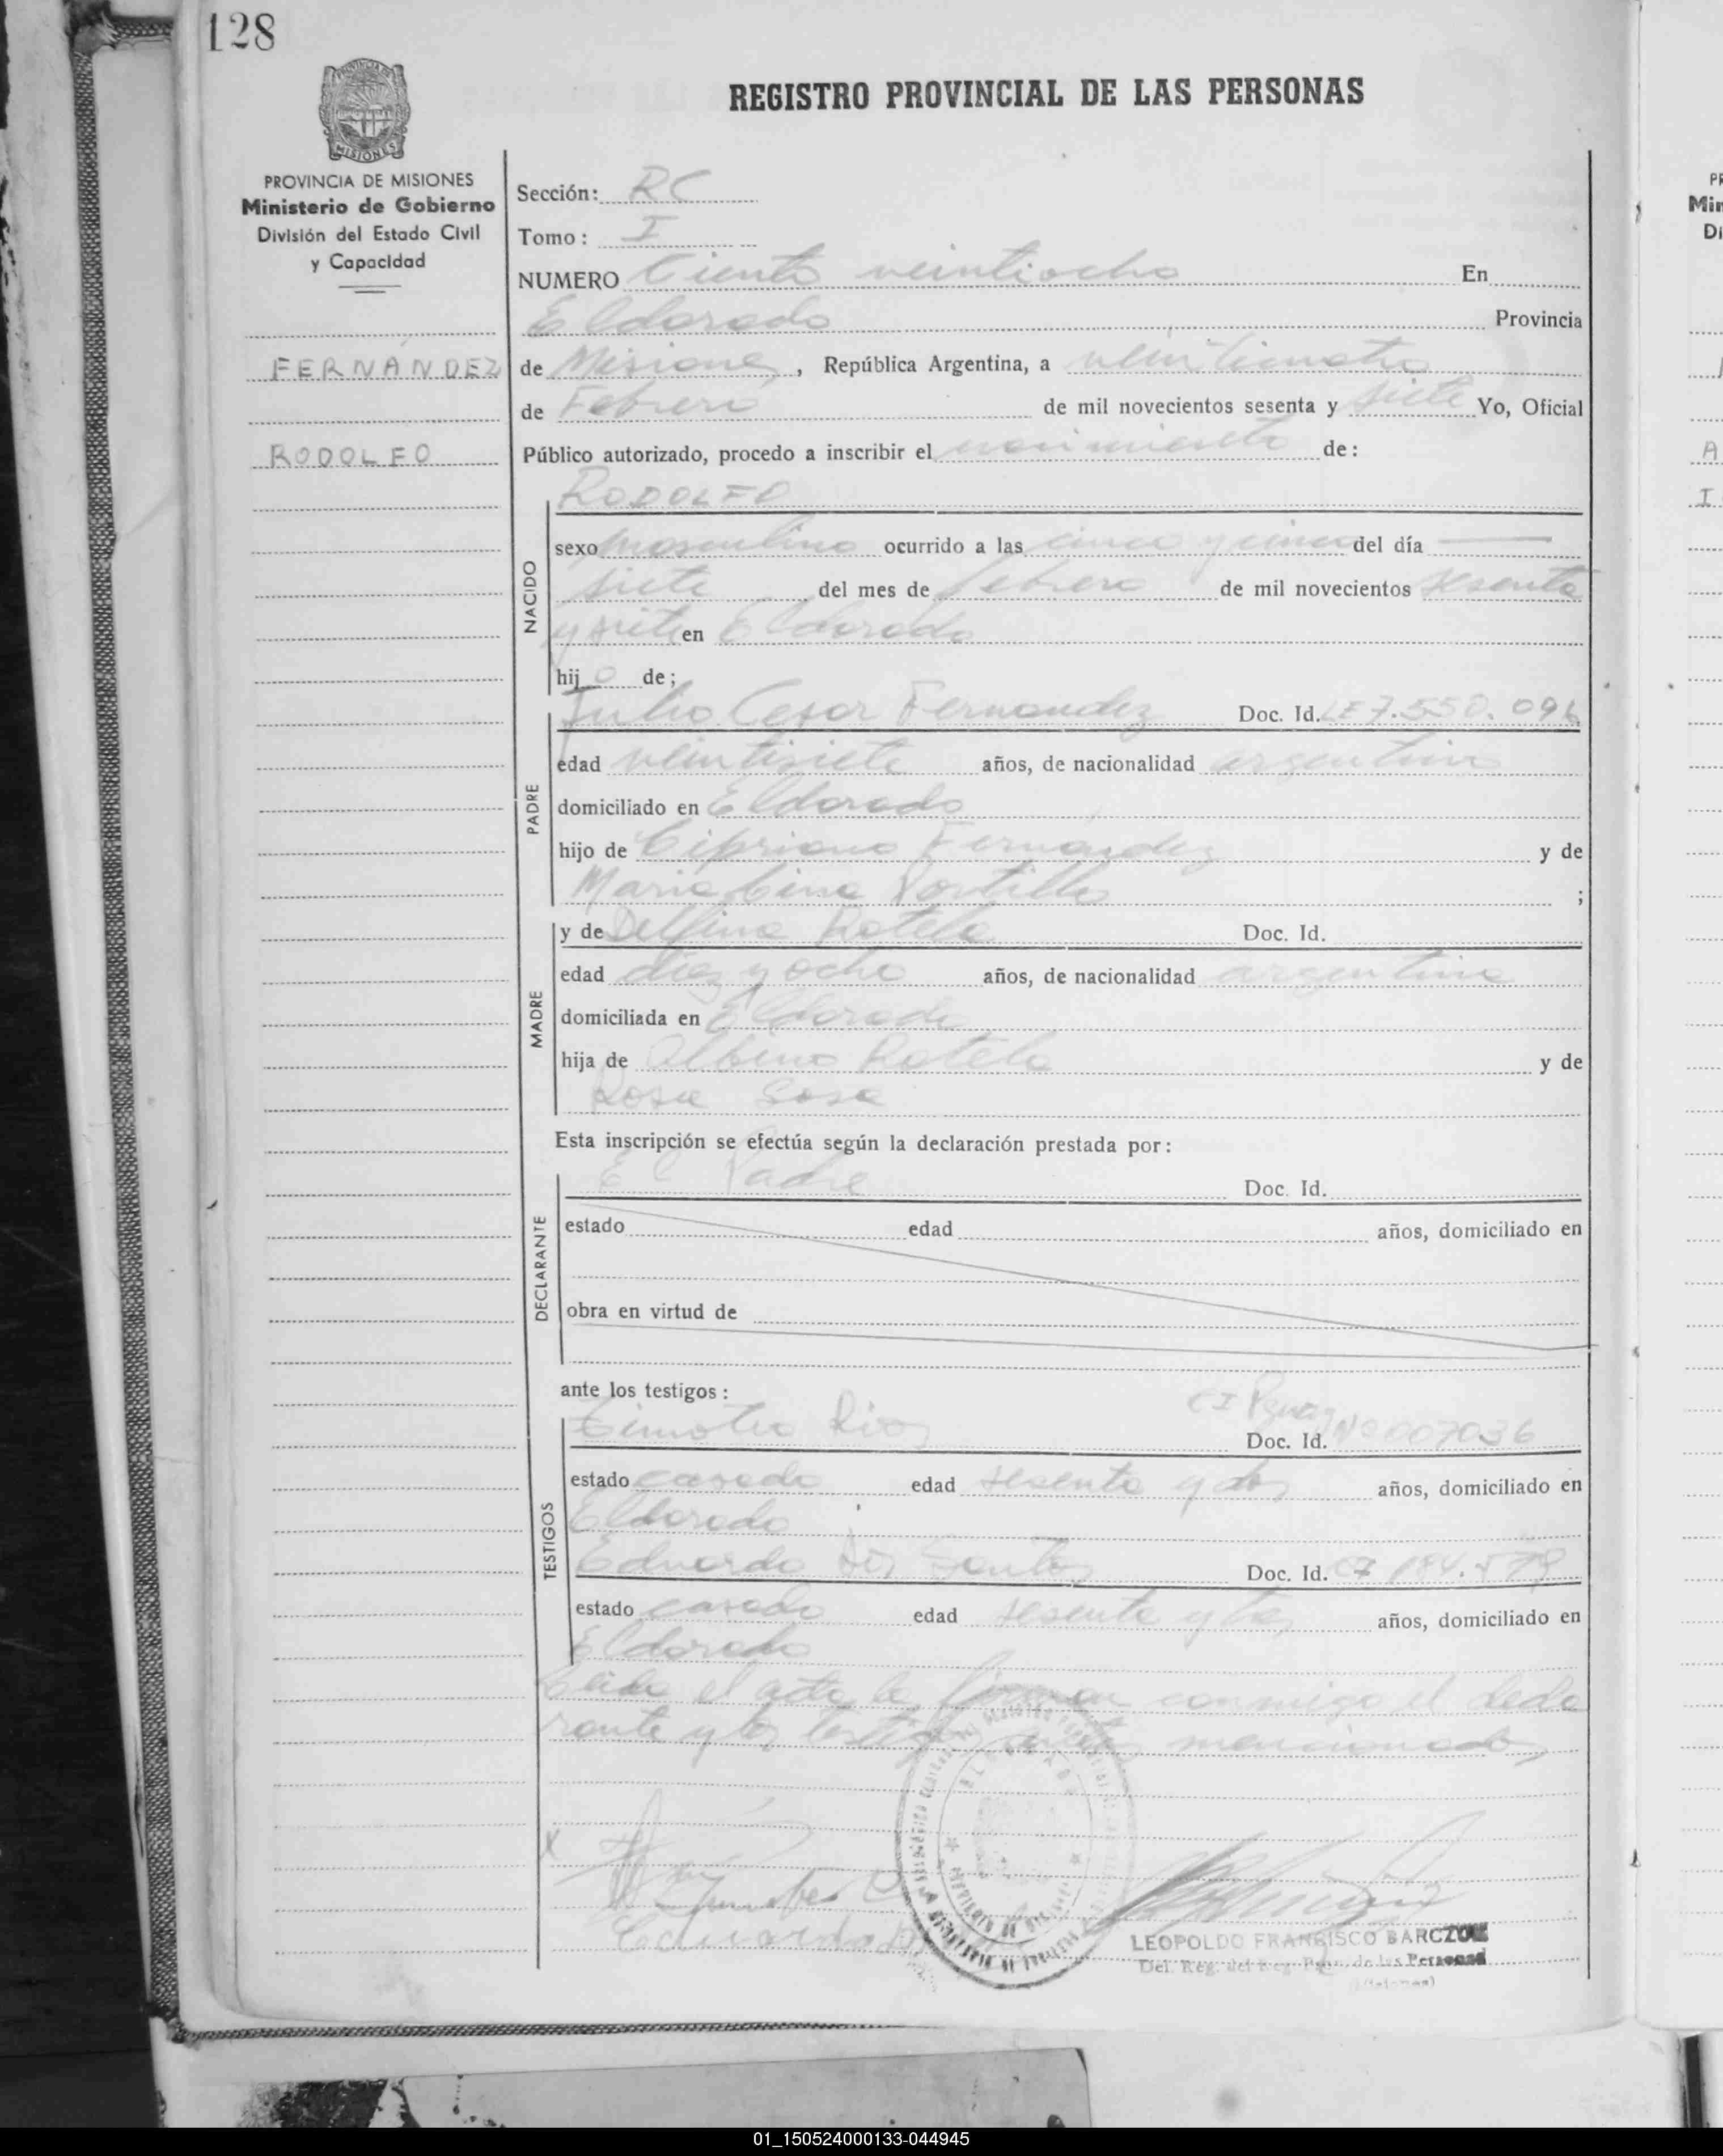 128
MISIONES
REGISTRO PROVINCIAL DE LAS PERSONAS
PROVINCIA DE MISIONES
Ministerio de Gobierno
División del Estado Civil
y Capacidad
FERNÁNDEZ
RODOLFO
Sección: RC
Tomo: I
NUMERO Ciento veintiocho En
Eldorado Provincia
de Misiones, República Argentina, a veinticuatro
de Febrero de mil novecientos sesenta y siete Yo, Oficial
Público autorizado, procedo a inscribir el nacimiento de:
RODOLFO
NACIDO
sexo masculino ocurrido a las cinco y cinco del día
siete del mes de febrero de mil novecientos sesenta
y siete en Eldorado
hijo de;
PADRE
Julio Cesar Fernandez Doc. Id. LE 7.550.096
edad veintisiete años, de nacionalidad argentina
domiciliado en Eldorado
hijo de Cipriano Fernández y de
Maria Portillo ;
MADRE
y de Delfina Rotela Doc. Id.
edad diez y ocho años, de nacionalidad argentina
domiciliada en Eldorado
hija de Albino Rotela y de
Rosa Sosa
Esta inscripción se efectúa según la declaración prestada por:
DECLARANTE
El Padre Doc. Id.
estado edad años, domiciliado en
obra en virtud de
ante los testigos:
TESTIGOS
Timoteo Rios Doc. Id. CI Nº 007036
estado casado edad sesenta y dos años, domiciliado en
Eldorado
Eduardo Dos Santos Doc. Id. 184.579
estado casado edad sesenta y tres años, domiciliado en
Eldorado
Leida el acta la firman conmigo el decla
rante y los testigos antes mencionados
X
Eduardo
LEOPOLDO FRANCISCO BARCZUK
Del. Reg. del Reg. Prov. de las Personas
(Misiones)
PR
Min
Di
A
I
01_150524000133-044945